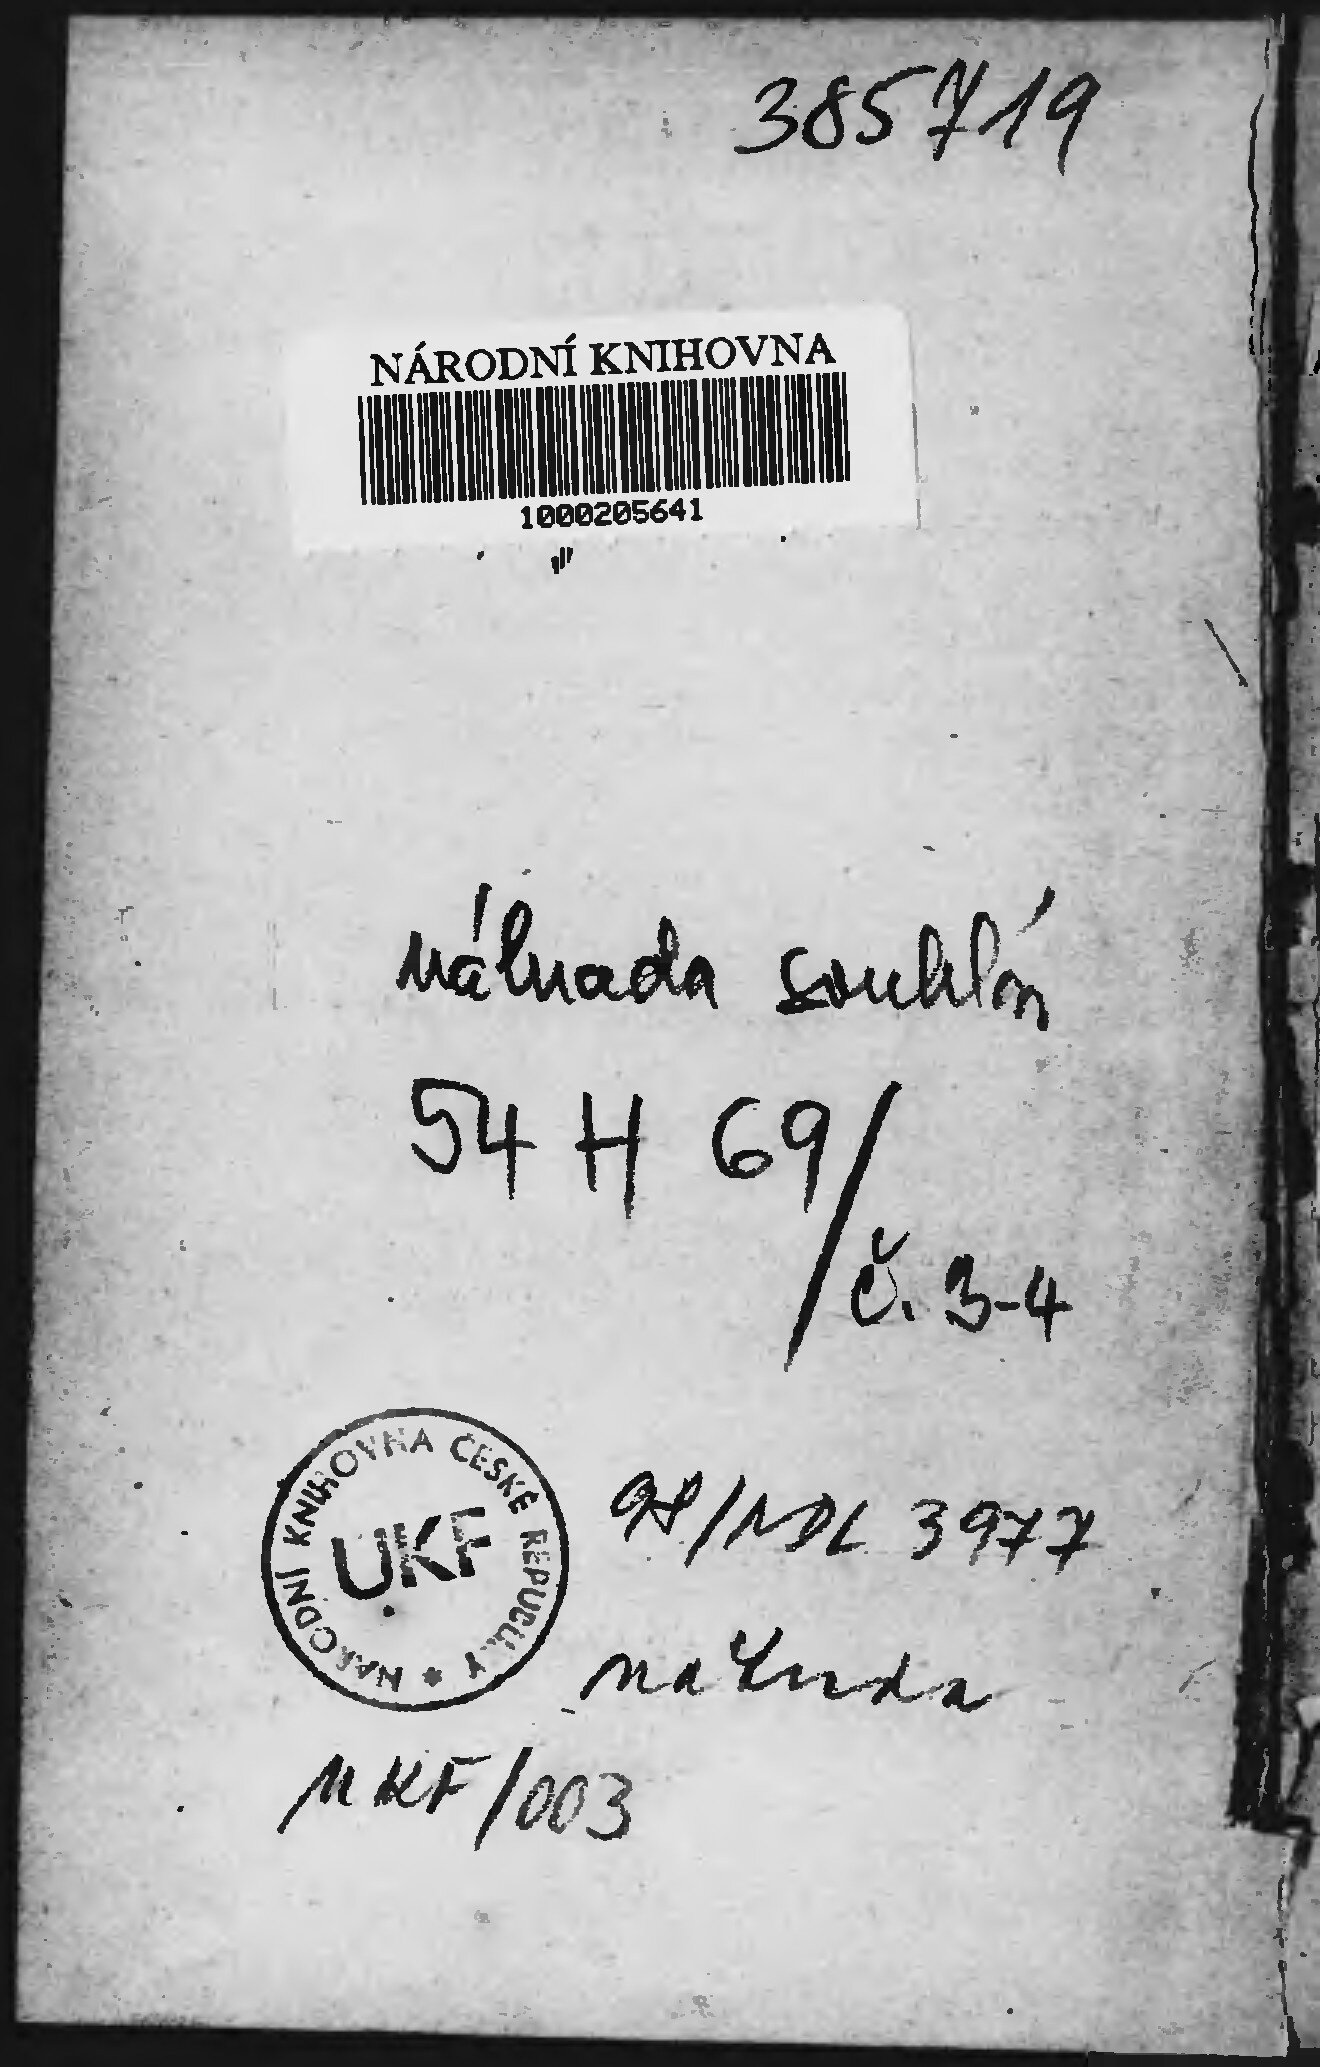 385719
NÁRODNÍ KNIHOVNA
1000205641
náhrada
54 H 69/
č. 3-4
NÁRODNÍ KNIHOVNA ČESKÉ REPUBLIKY *
UKF
98/NDL 3977
náhrada
UKF/003